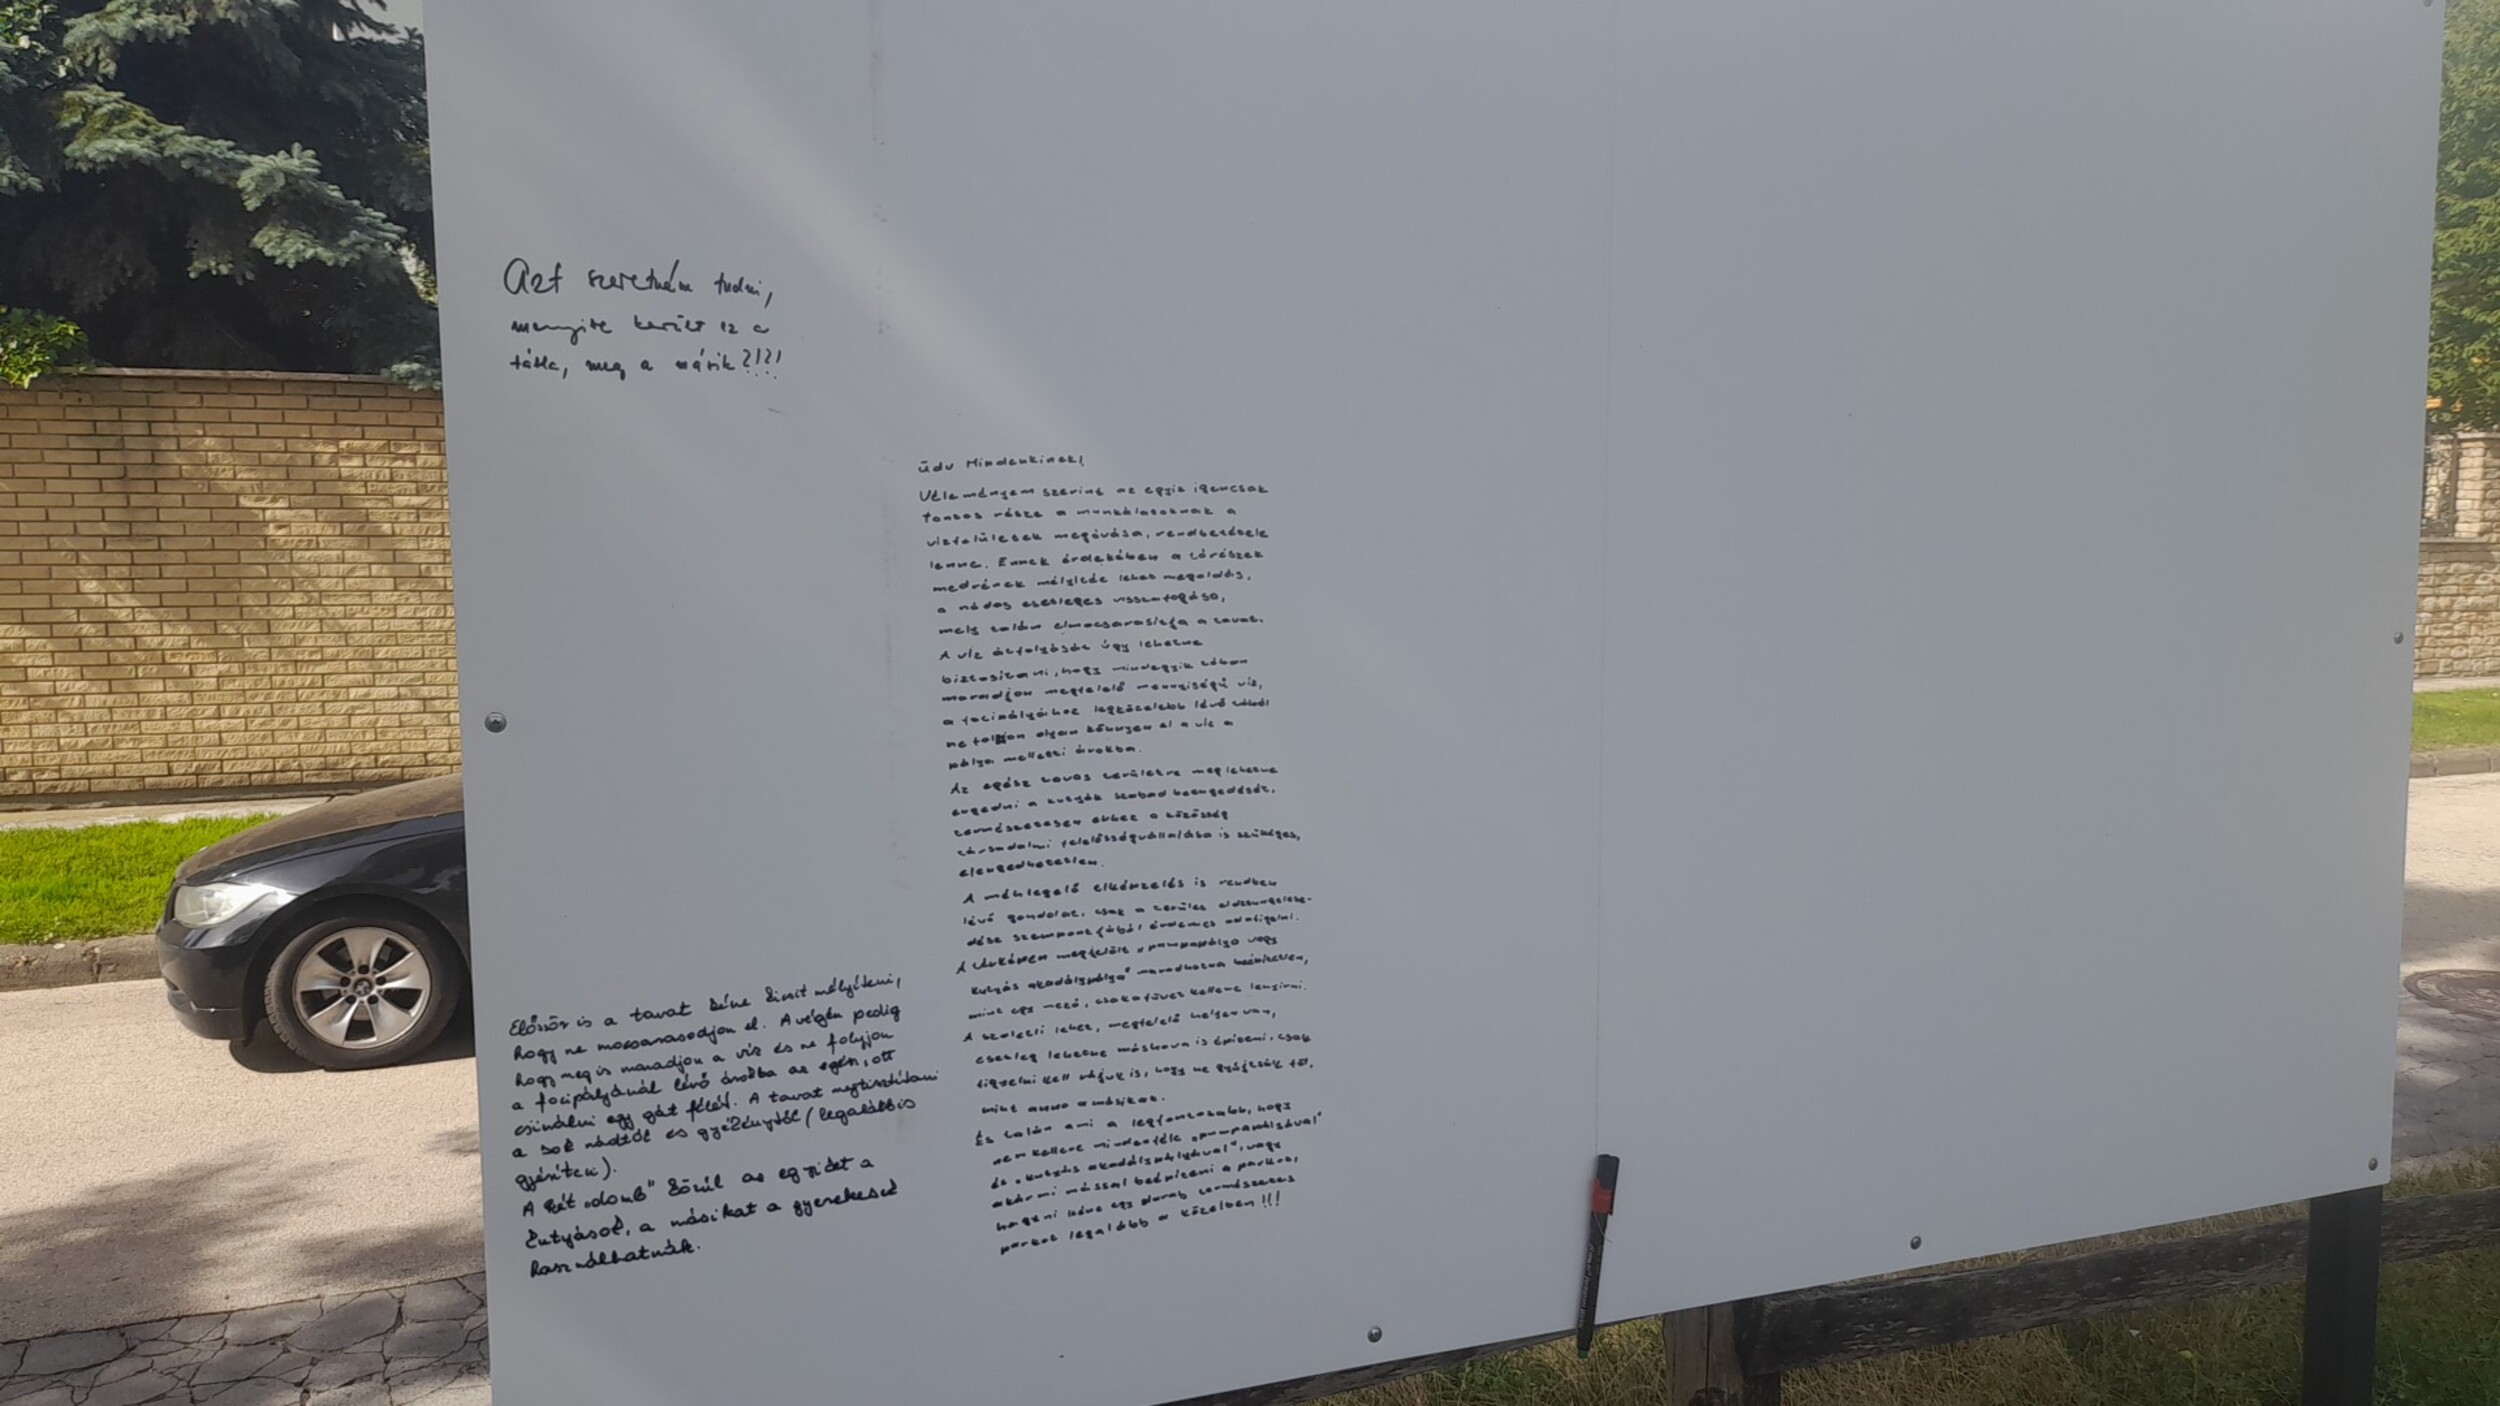 Azt szeretném tudni,
mennyibe került ez a
tábla, meg a másik?!?!
Üdv Mindenkinek!
Véleményem szerint az egyik igencsak
fontos része a munkálatoknak a
vízfelületek megóvása, rendbetétele
lenne. Ennek érdekében a tórészek
medrének mélyítése lehet megoldás,
a nádas esetleges visszafogása,
mely talán elmocsarasítja a tavat.
A víz átfolyását úgy lehetne
biztosítani, hogy mindegyik tóban
maradjon megfelelő mennyiségű víz,
a focipályához legközelebb lévő tóból
ne folyjon olyan könnyen el a víz a
pálya melletti árokba.
Az egész tavas területre meg lehetne
engedni a kutyák szabad beengedését,
természetesen ehhez a közösség
társadalmi felelősségvállalása is szükséges,
elengedhetetlen.
A méhlegelő elképzelés is rendben
lévő gondolat, csak a terület eldzsungelese-
dése szempontjából érdemes odafigelni.
A térképen megjelölt „pumpapálya vagy
kutyás akadálypálya" maradhatna beépítetlen,
mint egy mező, csak a füvet kellene lenyírni.
A szaletli lehet, megfelelő helyen van,
esetleg lehetne máshova is építeni, csak
figyelni kell rájuk is, hogy ne gyújtsák fel,
mint anno a másikat.
És talán ami a legfontosabb, hogy
nem kellene mindenféle „pumpapályával"
és „kutyás akadálypályával", vagy
akármi mással beépíteni a parkot,
hagyni kéne egy darab természetes
parkot legalább a közelben!!!
Először is a tavat kéne kicsit mélyíteni,
hogy ne mocsarasodjon el. A végén pedig
hogy meg is maradjon a víz és ne folyjon
a focipályánál lévő árokba az egész, ott
csinálni egy gát félét. A tavat megtisztítani
a sok nádtól és gyékénytől (legalábbis
gyéríteni).
A két „domb" közül az egyiket a
kutyások, a másikat a gyerekesek
használhatnák.